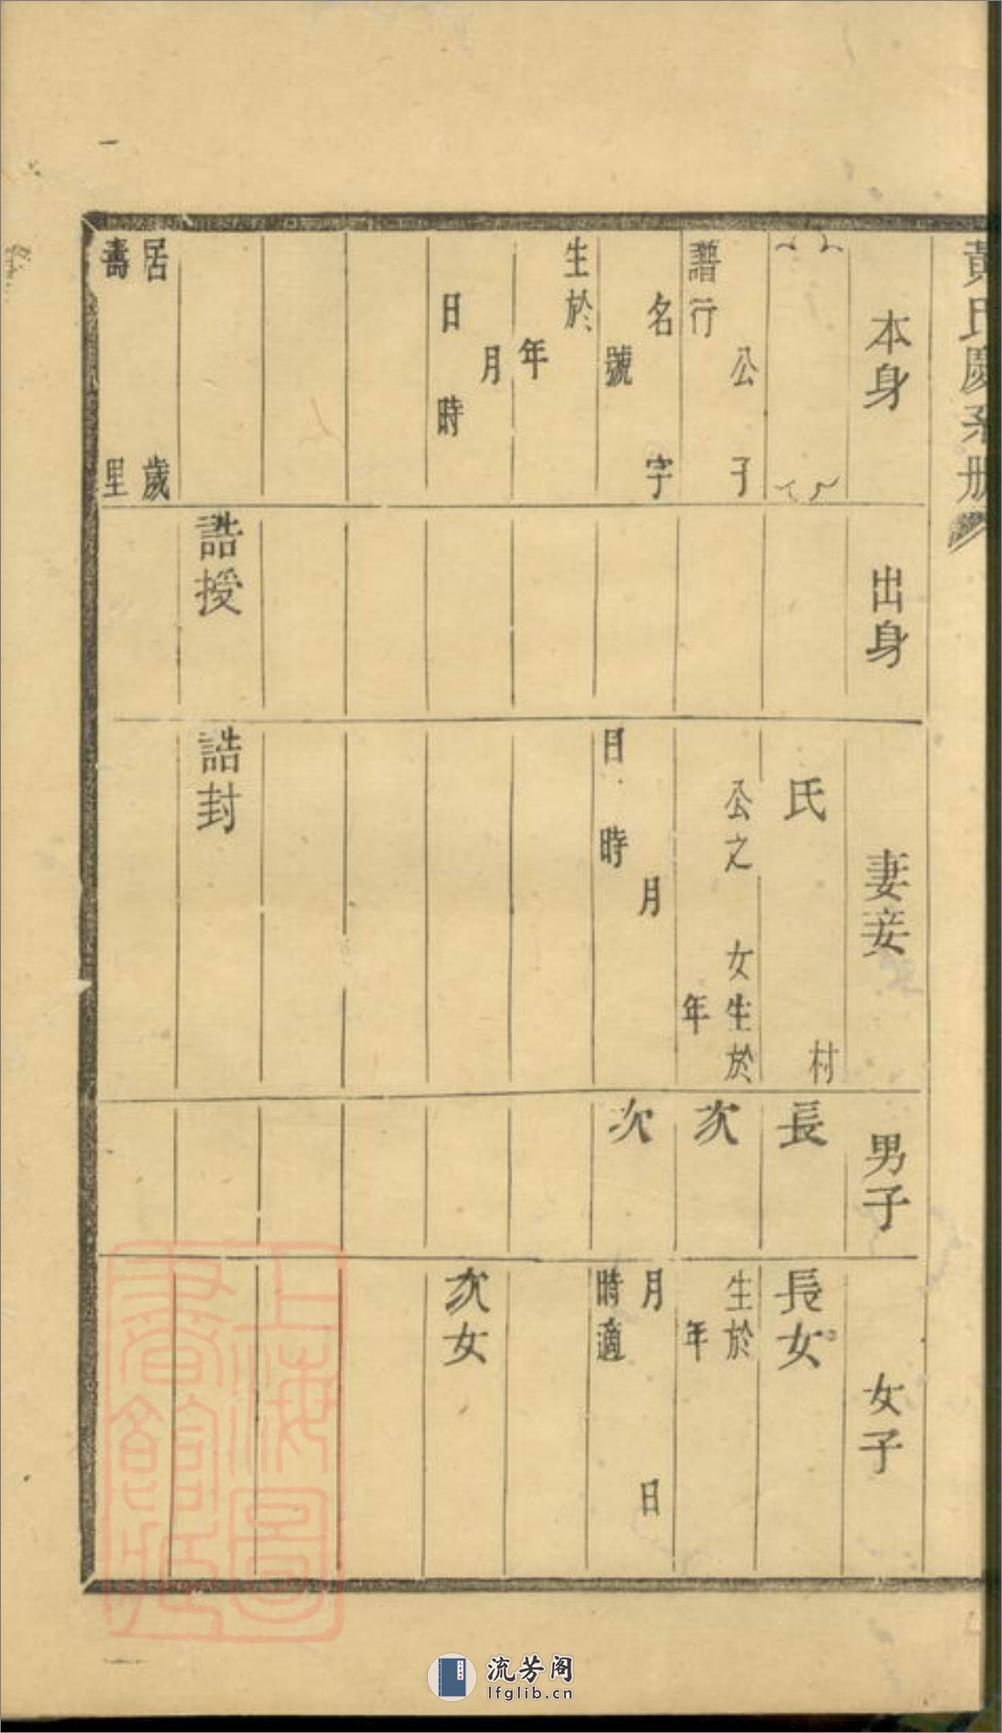 黃氏慶系册
本身
公子
譜行
名 字
號
生於
年
月
日 時
居 歲
壽 里
出身
誥授
妻妾
村
氏
公之 女生於
年
月
日 時
誥封
男子
長
次
次
女子
長女
生於
年
月 日
時適
次女
上海圖
書館藏
流芳阁
lfglib.cn